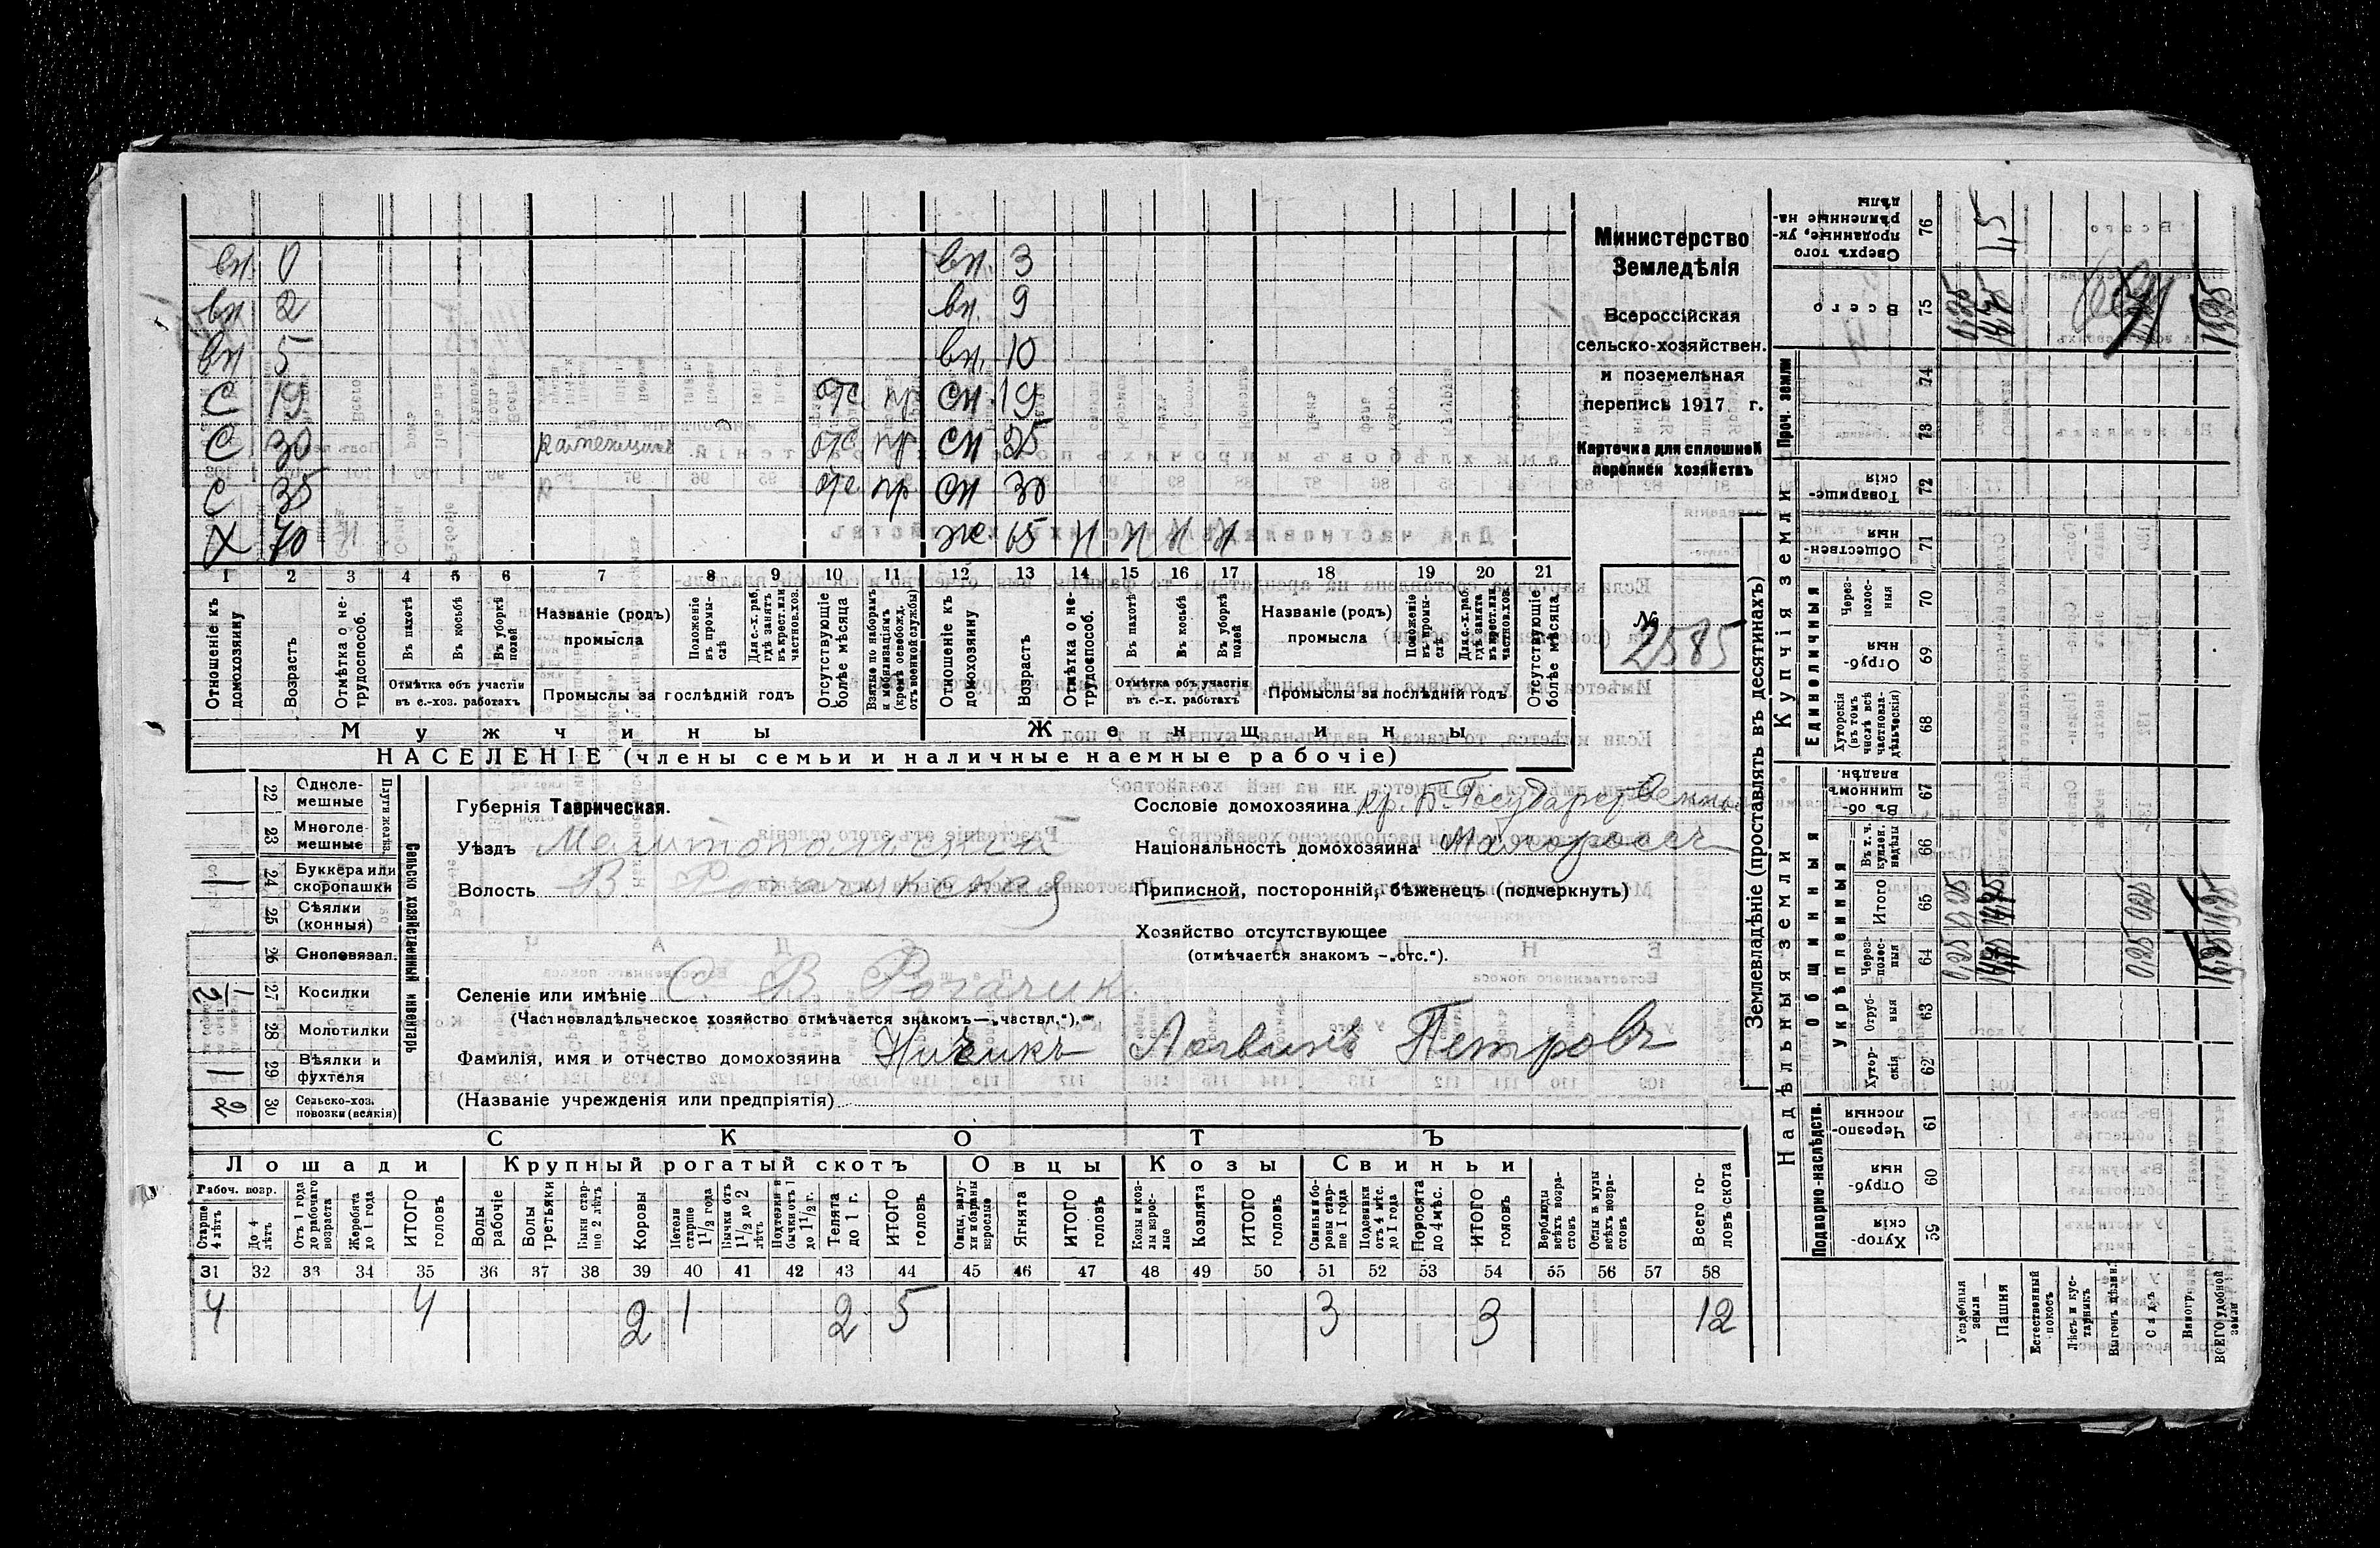 вн. 0 вн. 3
вн 2 вн. 9
вн 5 вн. 10
С 19 отс пр сн 19
С 30 каменщикъ отс пр сн 25
С 35 отс пр. сн 30
Х 70 Н ж 65 Н Н Н Н
1 2 3 4 5 6 7 8 9 10 11 12 13 14 15 16 17 18 19 20 21
Отношеніе къ домохозяину
Возрастъ
Отмѣтка о не-трудоспособ.
Въ пахотѣ
Въ косьбѣ
Въ уборкѣ полей
Отмѣтка объ участіи въ с.-хоз. работахъ
Названіе (родъ) промысла
Положеніе въ промы-слѣ
Для с.-х. раб. гдѣ занятъ въ крест. или частнов. хоз.
Промыслы за послѣдній годъ
Отсутствующіе болѣе мѣсяца
Взятые по наборамъ и мобилизаціямъ (кромѣ освобожд. отъ военной службы)
Отношеніе къ домохозяину
Возрастъ
Отмѣтка о не-трудоспособ.
Въ пахотѣ
Въ косьбѣ
Въ уборкѣ полей
Отмѣтка объ участіи въ с.-х. работахъ
Названіе (родъ) промысла
Положеніе въ промы-слѣ
Для с.-х. раб. гдѣ занята въ крест. или частнов. хоз.
Промыслы за послѣдній годъ
Отсутствующіе болѣе мѣсяца
Мужчины Женщины
НАСЕЛЕНІЕ (члены семьи и наличные наемные рабочіе)
Министерство
Земледѣлія
Всероссійская
сельско-хозяйствен.
и поземельная
перепись 1917 г.
Карточка для сплошной
переписи хозяйствъ
№
2585
22 Одноле-мешные
23 Многоле-мешные
Плуги желѣз.
1 24 Буккера или скоропашки
25 Сѣялки (конныя)
26 Сноповязал.
1/2 27 Косилки
28 Молотилки
1 29 Вѣялки и фухтеля
2 30 Сельско-хоз. повозки (всякія)
Сельско хозяйственный инвентарь
Губернія Таврическая.
Уѣздъ Мелитопольскій
Волость В Рогачикская
Сословіе домохозяина кр. б. Государственн.
Національность домохозяина Малороссъ
Приписной, посторонній, бѣженецъ (подчеркнуть)
Хозяйство отсутствующее
(отмѣчается знакомъ —„отс.“).
Селеніе или имѣніе С. В Рогачик
(Частновладѣльческое хозяйство отмѣчается знакомъ—„частвл.“).
Фамилія, имя и отчество домохозяина Ничикъ Логвинъ Петровъ
(Названіе учрежденія или предпріятія)
СКОТЪ
Лошади Крупный рогатый скотъ Овцы Козы Свиньи
Рабоч. возр.
Старше 4 лѣтъ
До 4 лѣтъ
Отъ 1 года до рабочаго возраста
Жеребята до 1 года
ИТОГО головъ
Волы рабочіе
Волы третьяки
Быки стар-ше 2 лѣтъ
Коровы
Нетели старше 1 1/2 года
Бычки отъ 1 1/2 до 2 лѣтъ
Подтелки и бычки отъ 1 до 1 1/2 г.
Телята до 1 г.
ИТОГО головъ
Овцы, валу-хи и бараны взрослые
Ягнята
ИТОГО головъ
Козы и коз-лы взрос-лые
Козлята
ИТОГО головъ
Свиньи и бо-ровы стар-ше 1 года
Подсвинки отъ 4 мѣс. до 1 года
Поросята до 4 мѣс.
ИТОГО головъ
Верблюды всѣхъ возра-стовъ
Ослы и мулы всѣхъ возра-стовъ
Всего го-ловъ скота
31 32 33 34 35 36 37 38 39 40 41 42 43 44 45 46 47 48 49 50 51 52 53 54 55 56 57 58
4 4 2 1 2 5 3 3 12
Землевладѣніе (проставлять въ десятинахъ)
Надѣльныя земли
Купчія земли
Проч. земли
Подворно-наслѣдств.
Общинныя
Укрѣпленныя
Единоличныя
59 Хутор-скія
60 Отруб-ныя
61 Черезпо-лосныя
62 Хутор-скія
63 Отруб-ныя
64 Через-полос-ныя
65 Итого
66 Въ т. ч. куплен. надѣлы
67 Въ об-щинномъ владѣн.
68 Хуторскія (въ томъ числѣ всѣ частновла-дѣльческія)
69 Отруб-ныя
70 Через-полос-ныя
71 Обществен-ныя
72 Товарище-скія
73
74
75 Всего
76 Сверхъ того проданные, ук-рѣпленные на-дѣлы
Усадебныя земли
Пашня
Естественный покосъ
Лѣсъ и кус-тарникъ
Выгонъ цѣлин.
Садъ
Виногр.
ВСЕГО удобной земли
0,25
11,5